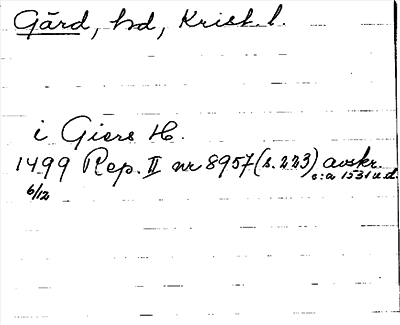 Gård, hd, Krist. l.
i Giers H.
1499 Rep. II nr 8957 (s. 223) avskr.
6/12 c:a 1531 u.d.